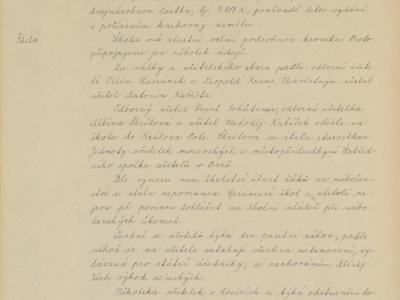 dvojnásobnou částku, tj. K, poněvadž letos vydání
s pořízením knihovny neměla.
Škola
Škola má vlastní velmi podrobnou kroniku. Proto
připojujeme jen několik údajů.
Za války z učitelského sboru padli odborní učite-
lé Vilém Havránek a Leopold Kraus. Nezvěstným zůstal
učitel Antonín Kubišta.
Odborný učitel Frant. Schützner, odborná učitelka
Albína Škeitová a učitel Metoděj Kubíček odešli na
školu do Králova Pole. Škeitová se stala starostkou
Jednoty učitelek moravských a místopředsedkyní Ústřed-
ního spolku učitelů v Brně.
Dle výnosu min. školství účast žáků na nábožen-
ství se stala nepovinnou. Správcové škol a učitelé ne-
jsou již povinni dohlížet na školní mládež při nábo-
ženských úkonech.
Osobně se učitelů týká tzv. paritní zákon, podle
něhož se na učitele vztahují všechna ustanovení, vy-
dávaná pro státní úředníky, se zachováním dřívěj-
ších výhod učitelských.
Několika učitelek v Košicích se týká odstranění do-